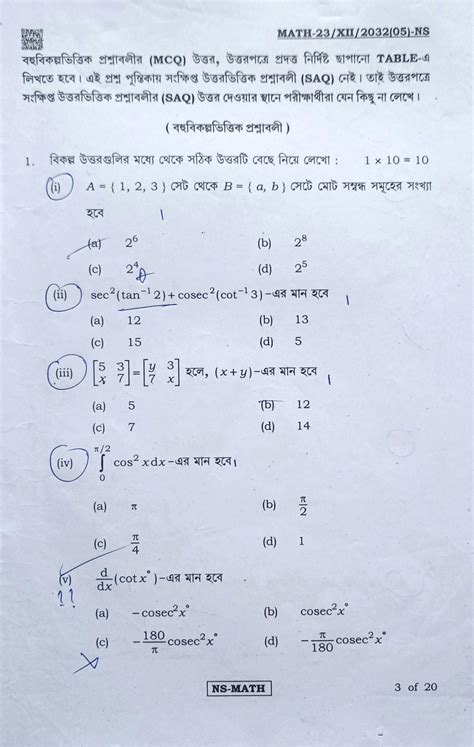 MATH-23/XII/2032(05)-NS
বহুবিকল্পভিত্তিক প্রশ্নাবলীর (MCQ) উত্তর, উত্তরপত্রে প্রদত্ত নির্দিষ্ট ছাপানো TABLE-এ
লিখতে হবে। এই প্রশ্ন পুস্তিকায় সংক্ষিপ্ত উত্তরভিত্তিক প্রশ্নাবলী (SAQ) নেই। তাই উত্তরপত্রে
সংক্ষিপ্ত উত্তরভিত্তিক প্রশ্নাবলীর (SAQ) উত্তর দেওয়ার স্থানে পরীক্ষার্থীরা যেন কিছু না লেখে।
( বহুবিকল্পভিত্তিক প্রশ্নাবলী )
1. বিকল্প উত্তরগুলির মধ্যে থেকে সঠিক উত্তরটি বেছে নিয়ে লেখো : 1 x 10 = 10
(i) A = { 1, 2, 3 } সেট থেকে B = { a, b } সেটে মোট সম্বন্ধ সমূহের সংখ্যা
হবে
(a) 2⁶ (b) 2⁸
(c) 2⁴ (d) 2⁵
(ii) sec²(tan⁻¹ 2) + cosec²(cot⁻¹ 3)-এর মান হবে
(a) 12 (b) 13
(c) 15 (d) 5
(iii) [5 3; x 7] = [y 3; 7 x] হলে, (x + y)-এর মান হবে
(a) 5 (b) 12
(c) 7 (d) 14
(iv) ∫₀^(π/2) cos² x dx-এর মান হবে
(a) π (b) π/2
(c) π/4 (d) 1
(v) d/dx (cot x°)-এর মান হবে
??
(a) -cosec²x° (b) cosec²x°
(c) -180/π cosec²x° (d) -π/180 cosec²x°
NS-MATH 3 of 20